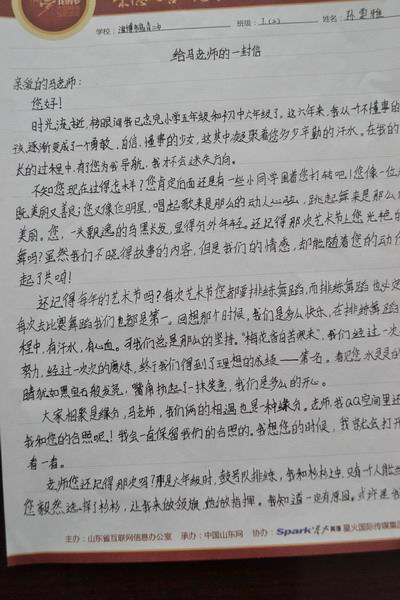 学校: 淄博市 班级: 1(2) 姓名: 孙
给马老师的一封信
亲爱的马老师:
您好!
时光流逝,转眼间我已念完小学五年级和初中六年级了。这六年来,我从一个不懂事的
孩,逐渐变成了一个勇敢、自信、懂事的少女,这其中凝聚着您多少辛勤的汗水。在我的
长的过程中,有了您为我导航,我才不会迷失方向。
不知您现在过得怎样?您肯定后面还是有一些小同学围着您打转吧!您像一位
既美丽又善良;您又像位明星,唱起歌来是那么的动人心弦,跳起舞来是那么
美丽。您,一头飘逸的乌黑长发,显得分外年轻。还记得那次艺术节上您光艳的
舞吗?虽然我们不晓得故事的内容,但是我们的情感,却能随着您的动作
起了共鸣!
还记得每年的艺术节吗?每次艺术节您都要排练舞蹈,而排练舞蹈也必定
每次去比赛舞蹈我们也都是第一。回想那个时候,我们是多么快乐,在排练舞蹈
程中,有汗水,有心血。可我们总是那么的坚持。“梅花香自苦寒来”,我们经过一次
努力,经过一次次的磨炼,终于我们得到了理想的成绩——第一名。看见您水灵灵的
睛犹如黑宝石般发亮,嘴角扬起了一抹笑意,我们是多么的开心。
大家相聚是缘分,马老师,我们俩的相遇也是一种缘分。老师,我QQ空间里还
我和您的合照呢!我会一直保留我们的合照的。我想您的时候,我就会打开
看一看。
老师您还记得那次吗?那是六年级时,鼓号队排练,我和杉杉之中,只有一个人能当
您毅然选择了杉杉,让我来做领旗,她做指挥。我知道一定有原因。或许是我
主办:山东省互联网信息办公室 承办:中国山东网 协办:Spark 星火国际传媒集团